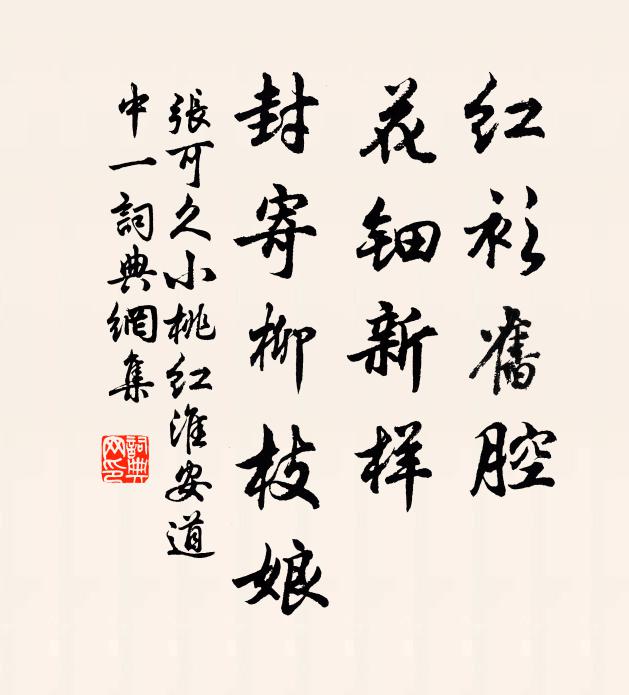 红衫舊腔
花钿新样
封寄柳枝娘
張可久小桃红淮安道
中一詞典網集
詞典网印